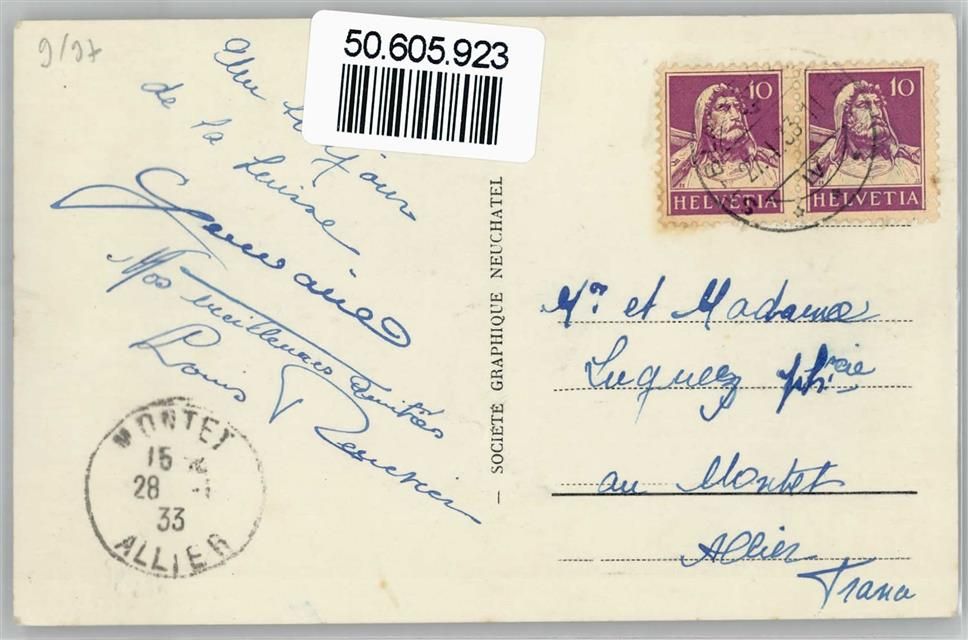 9/97
50.605.923
de la Suisse
Germaine
Nos meilleures Amitiés
Louis
SOCIÉTÉ GRAPHIQUE NEUCHATEL
10
HELVETIA
10
HELVETIA
Mr et Madame
Luquez phcie
au Montet
Allier
France
MONTET
15
28 -1
33
ALLIER